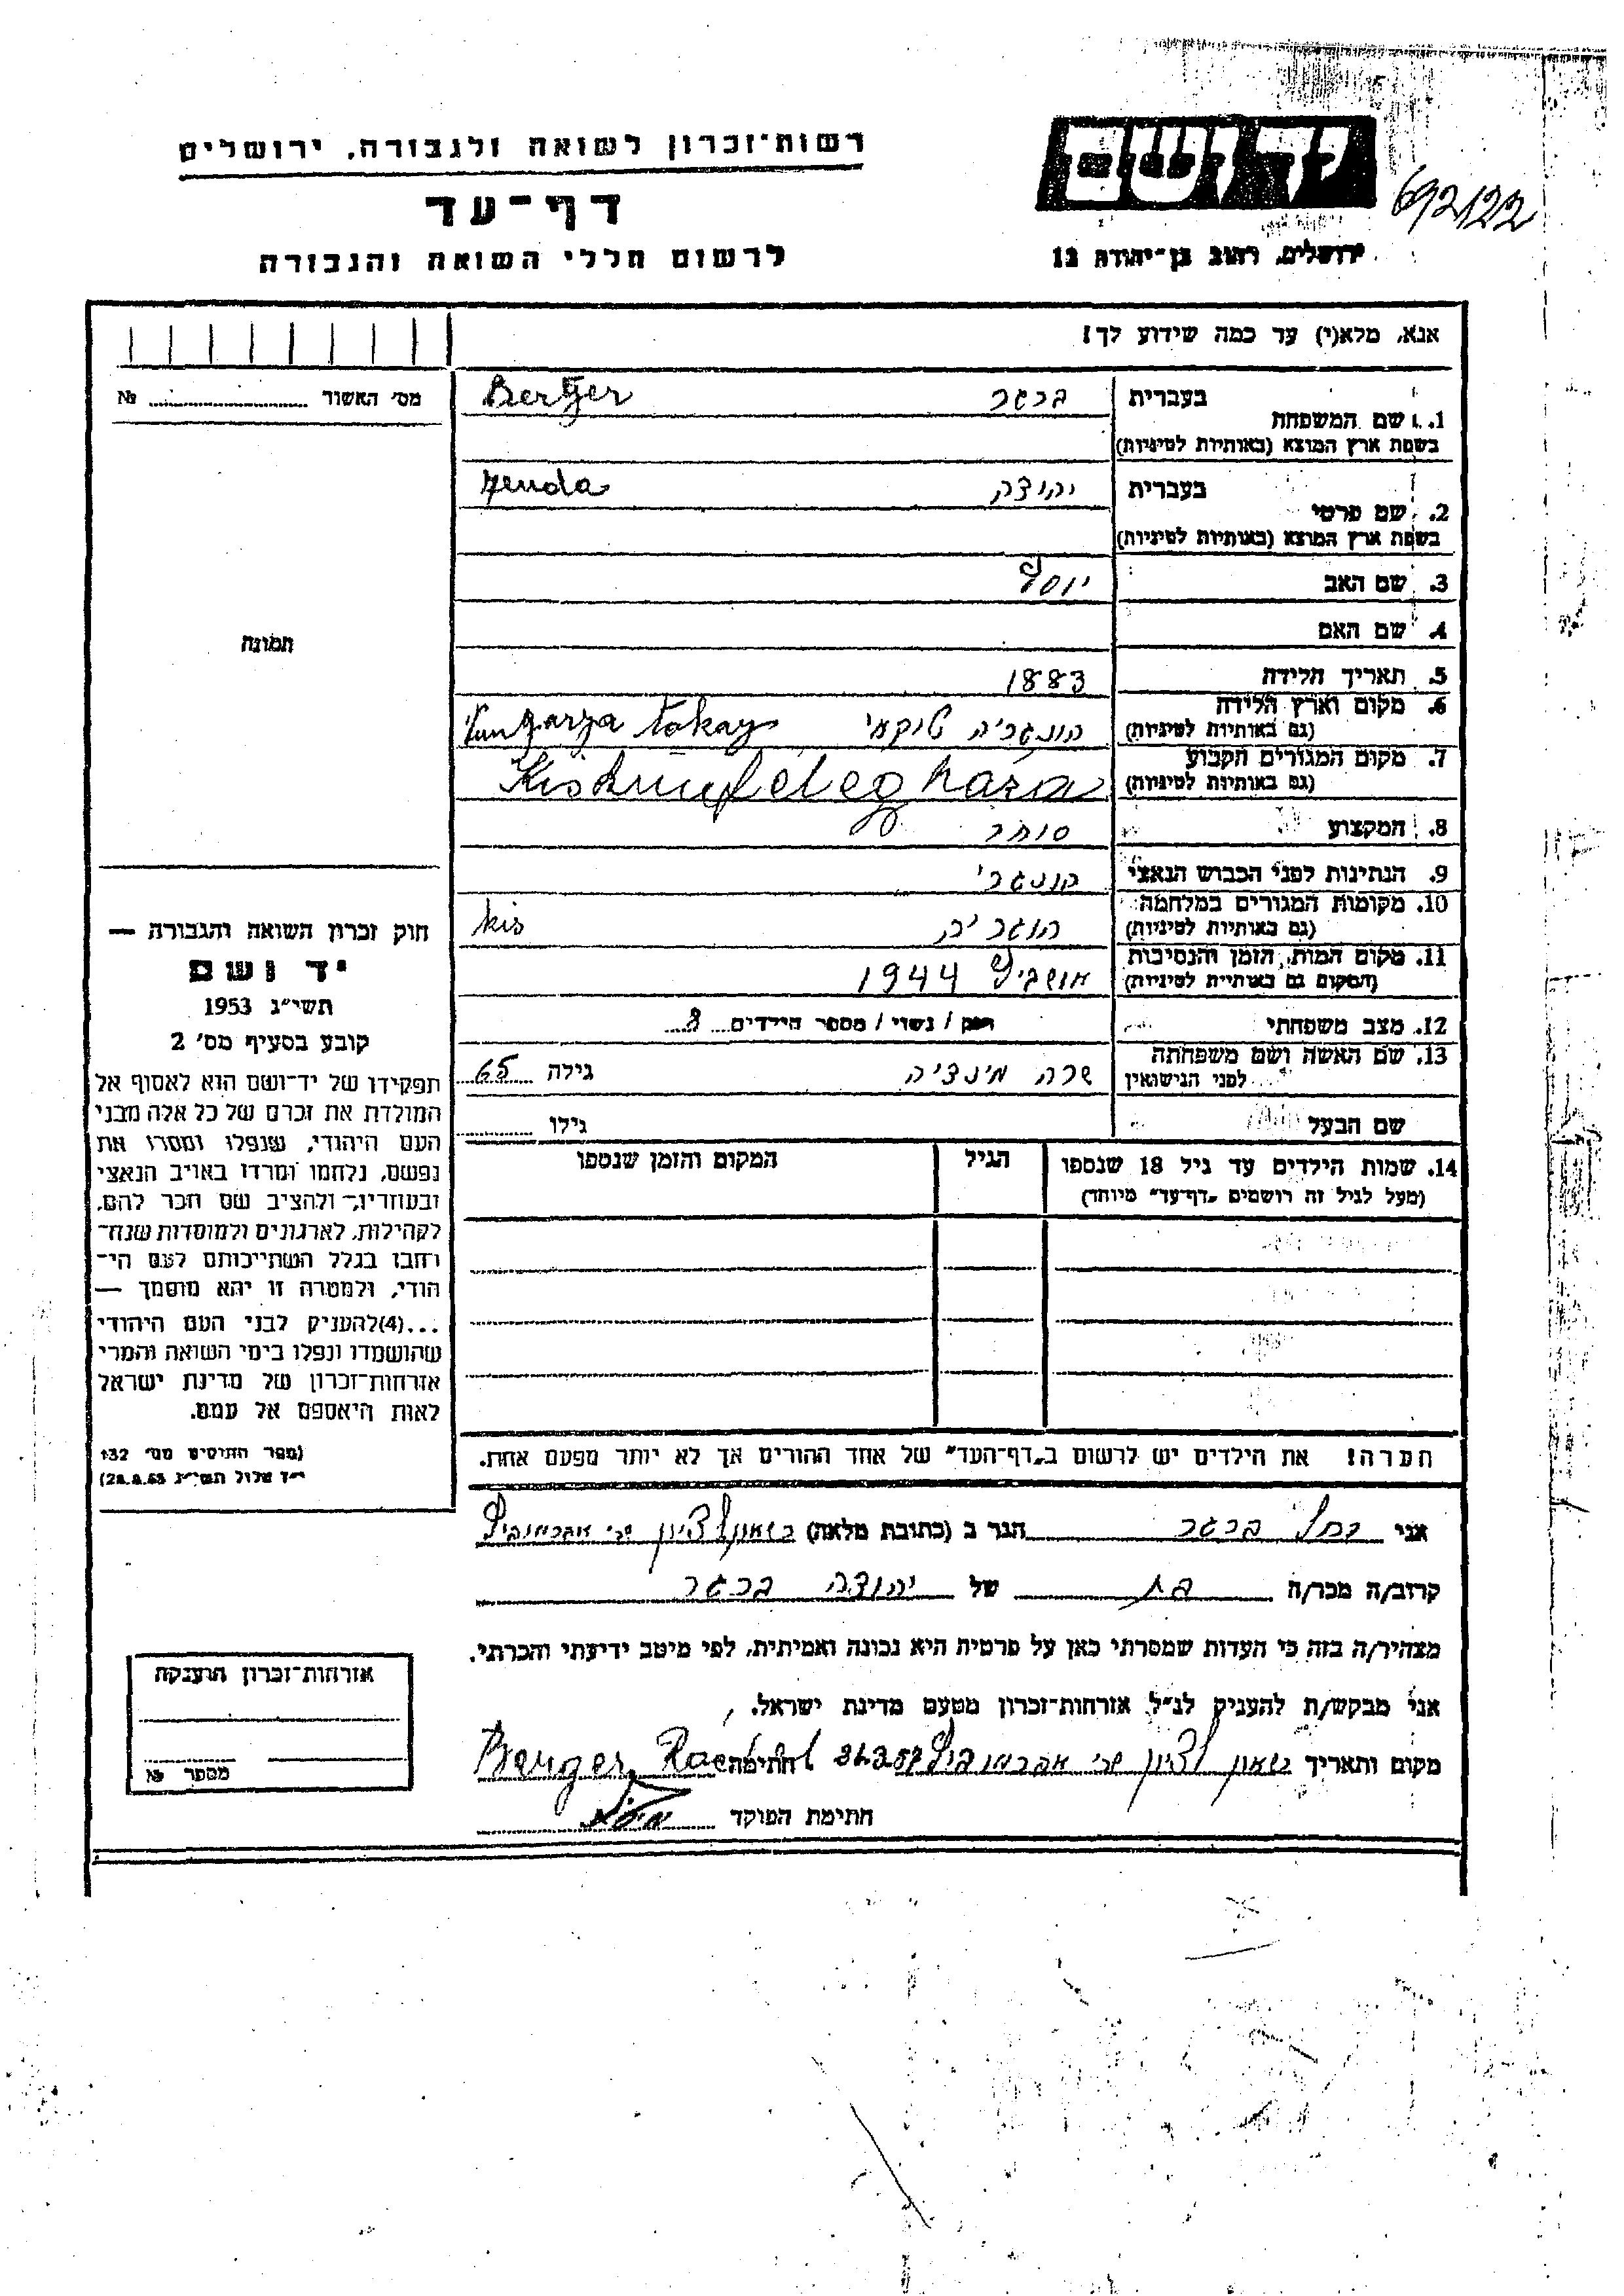 רשות־זכרון לשואה ולגבורה, ירושלים
דף־עד
לרשום חללי השואה והגבורה
יד ושם
692122
ירושלים, רחוב בן־יהודה 12
אנא, מלא(י) עד כמה שידוע לך!
מס׳ האשור № 
תמונה
1. שם המשפחה
בעברית ברגר Berger
בשפת ארץ המוצא (באותיות לטיניות)
2. שם פרטי
בעברית יהודה
בשפת ארץ המוצא (באותיות לטיניות)
3. שם האב יוסף
4. שם האם
5. תאריך הלידה 1883
6. מקום וארץ הלידה
(גם באותיות לטיניות) הונגריה טוקאי tokay
7. מקום המגורים הקבוע
(גם באותיות לטיניות)
8. המקצוע סוחר
9. הנתינות לפני הכבוש הנאצי הונגרי
10. מקומות המגורים במלחמה
(גם באותיות לטיניות) הונגריה kis
11. מקום המות, הזמן והנסיבות
(המקום גם באותיות לטיניות) אושביץ 1944
12. מצב משפחתי רווק / נשוי / מספר הילדים 8
13. שם האשה ושם משפחתה
לפני הנישואין שרה מינציה גילה 65
שם הבעל גילו
14. שמות הילדים עד גיל 18 שנספו הגיל המקום והזמן שנספו
(מעל לגיל זה רושמים „דף־עד״ מיוחד)
הערה! את הילדים יש לרשום ב„דף־העד״ של אחד ההורים אך לא יותר מפעם אחת.
חוק זכרון השואה והגבורה —
יד ושם
תשי״ג 1953
קובע בסעיף מס׳ 2
תפקידו של יד־ושם הוא לאסוף אל
המולדת את זכרם של כל אלה מבני
העם היהודי, שנפלו ומסרו את
נפשם, נלחמו ומרדו באויב הנאצי
ובעוזריו,־ ולהציב שם וזכר להם,
לקהילות, לארגונים ולמוסדות שנח־
רחבו בגלל השתייכותם לעם הי־
הודי, ולמטרה זו יהא מוסמך —
...(4)להעניק לבני העם היהודי
שהושמדו ונפלו בימי השואה והמרי
אזרחות־זכרון של מדינת ישראל
לאות היאספם אל עמם.
(ספר החוקים מס׳ 132
י״ד אלול תשי״ג 28.8.53)
אני רחל ברגר הגר ב (כתובת מלאה) ראשון לציון שכ׳ אברמוביץ
קרוב/ה מכר/ה בת של יהודה ברגר
מצהיר/ה בזה כי העדות שמסרתי כאן על פרטיה היא נכונה ואמיתית, לפי מיטב ידיעתי והכרתי.
אני מבקש/ת להעניק לנ״ל אזרחות־זכרון מטעם מדינת ישראל.
מקום ותאריך ראשון לציון שכ׳ אברמוביץ חתימה Berger Rachel
חתימת הפוקד
אזרחות־זכרון הוענקה
מספר №